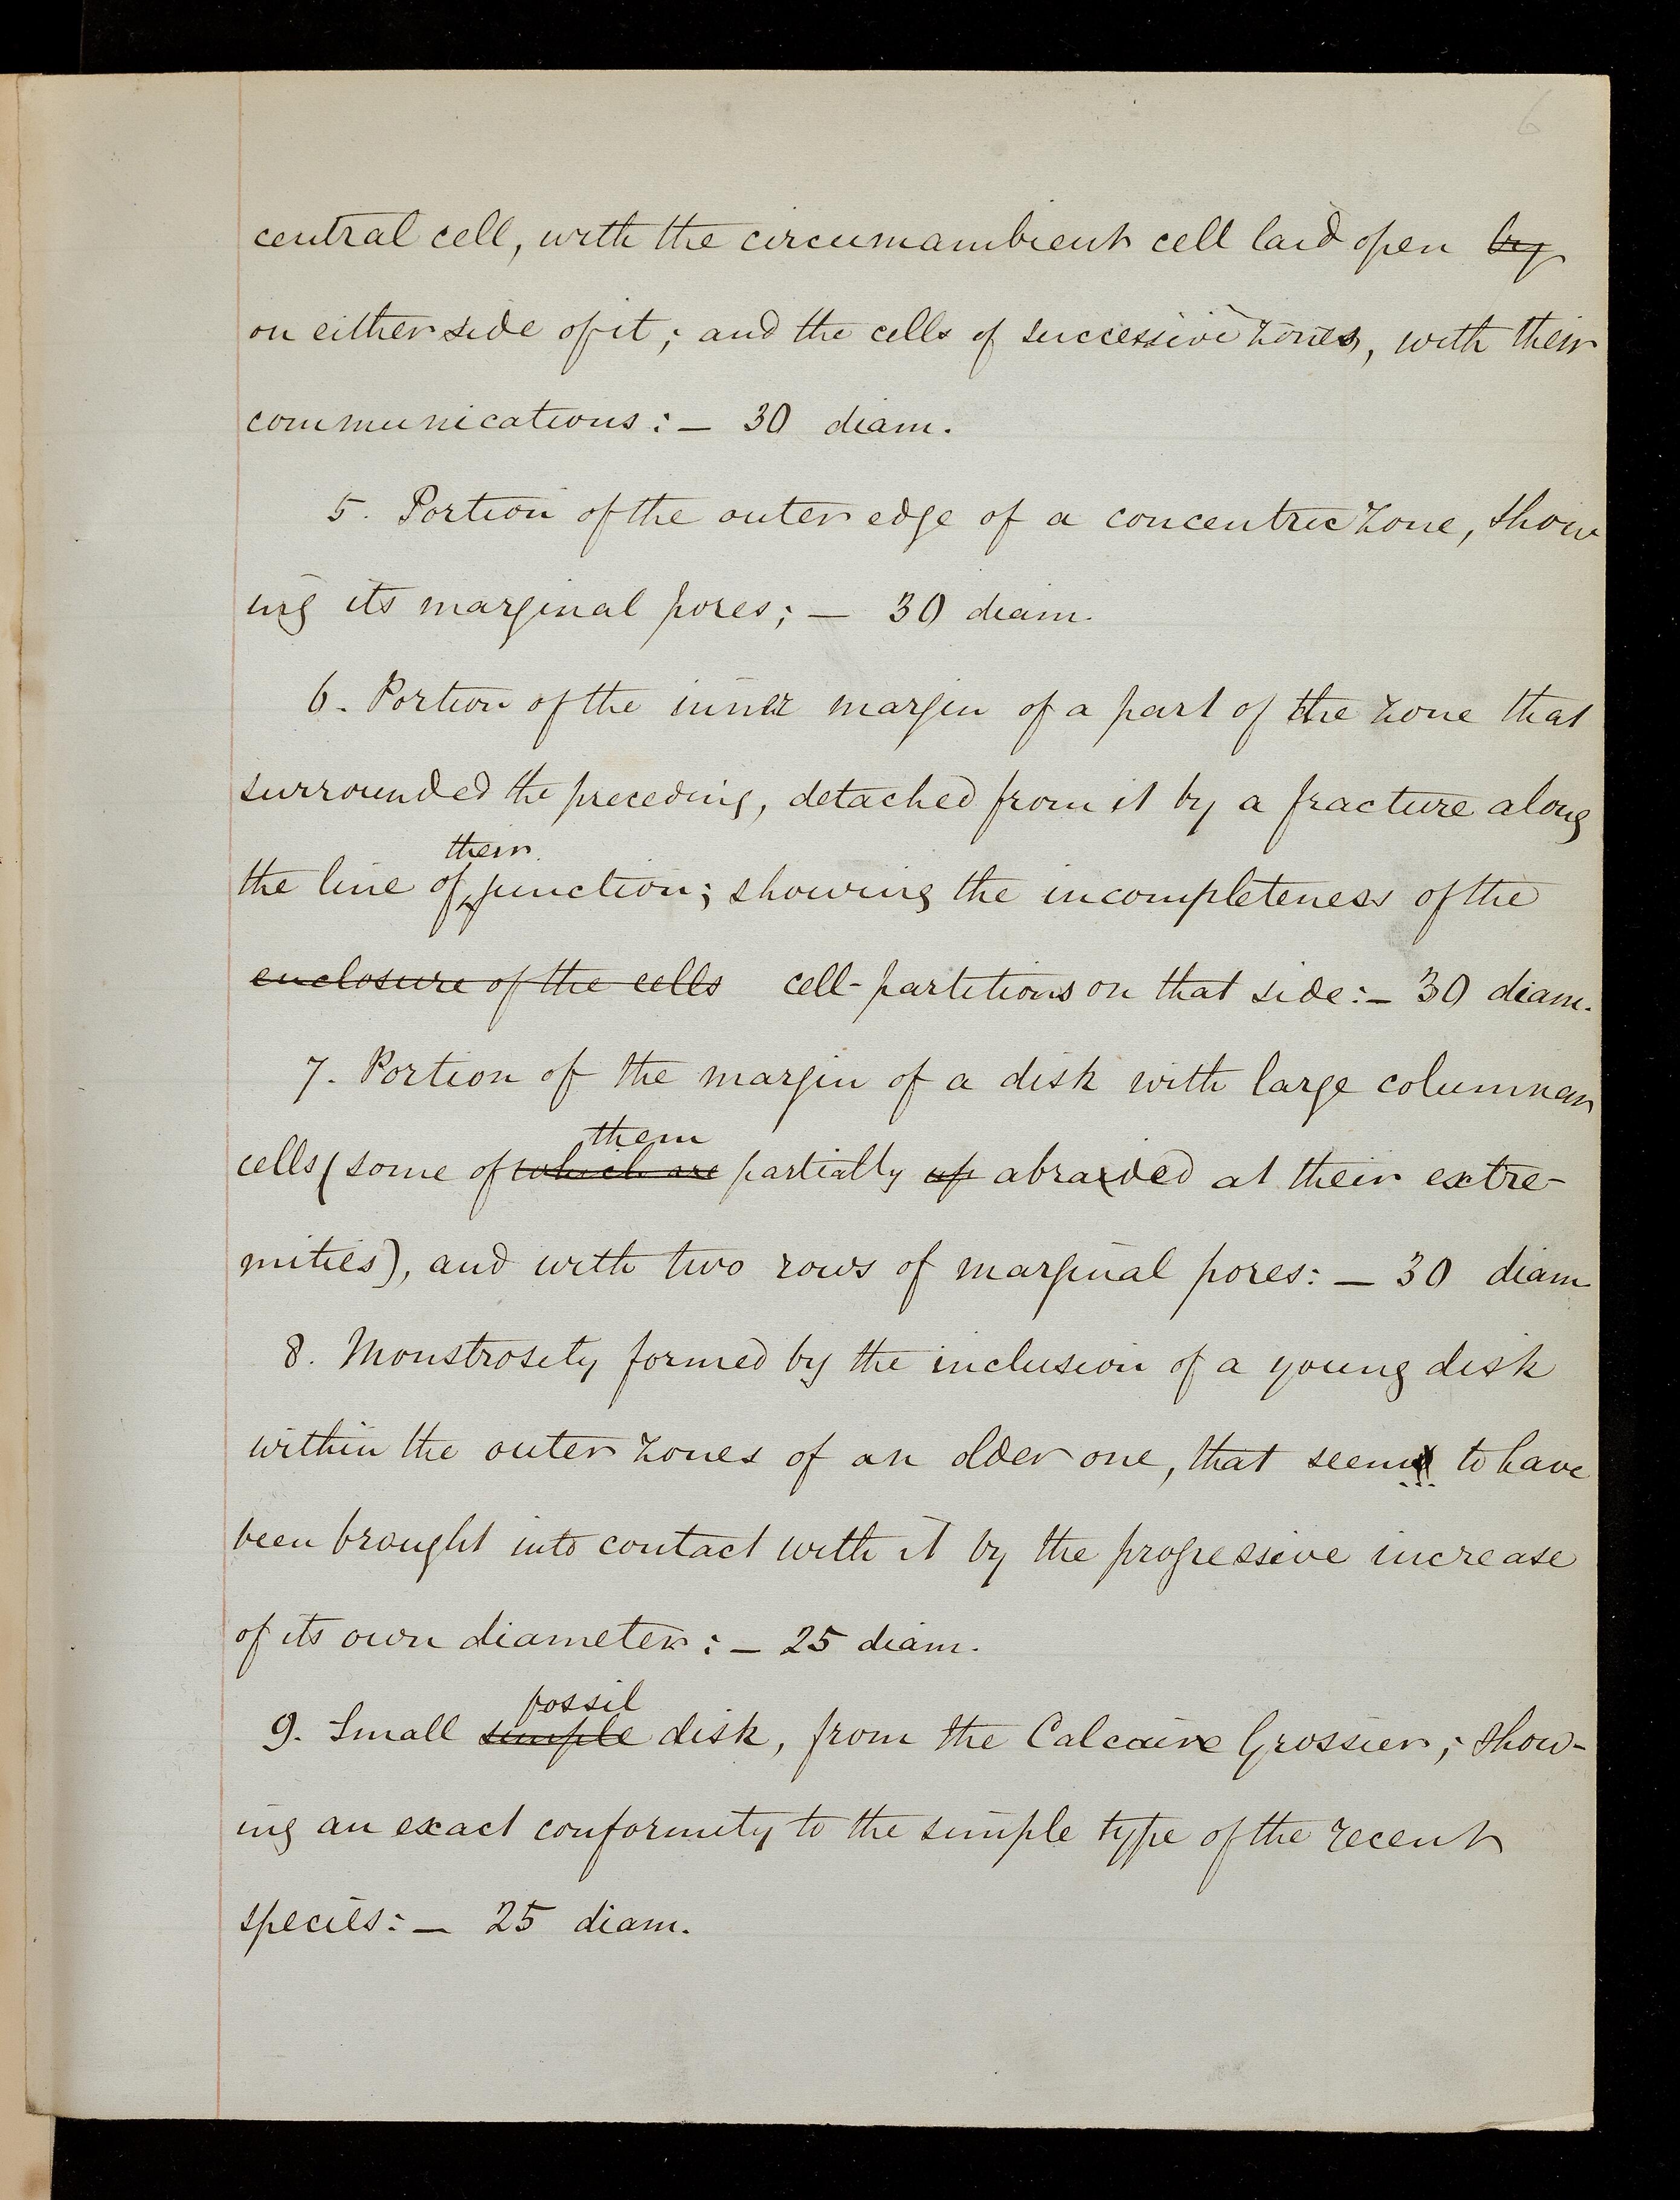 6
central cell, with the circumambient cell laid open ~~by~~
on either side of it; and the cells of successive zones, with their
communications:— 30 diam.
5. Portion of the outer edge of a concentric zone, show
ing its marginal pores;— 30 diam.
6. Portion of the inner margin of a part of the zone that
surrounded the preceding, detached from it by a fracture along
their
the line of ‸ junction; showing the incompleteness of the
~~enclosure of the cells~~ cell-partitions on that side:— 30 diam.
7. Portion of the margin of a disk with large columnar
them
cells (some of ~~which are~~ partially ~~up~~ abraded at their extre-
mities), and with two rows of marginal pores:— 30 diam
8. Monstrosity formed by the inclusion of a young disk
within the outer zones of an older one, that seems to have
been brought into contact with it by the progressive increase
of its own diameter:— 25 diam.
fossil
9. Small ~~simple~~ disk, from the Calcaire Grossier; show-
ing an exact conformity to the simple type of the recent
species:— 25 diam.